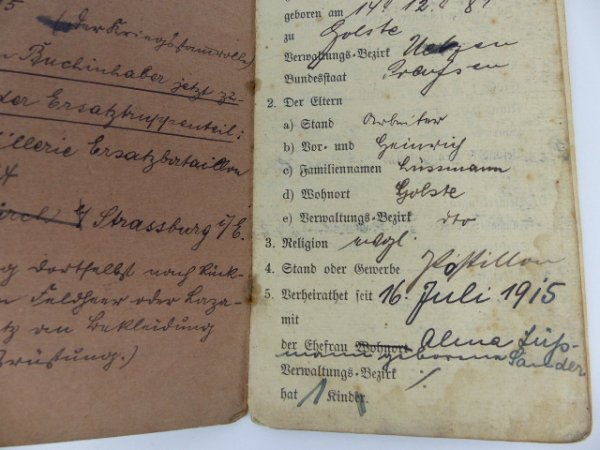 5
(der Kriegsstammrolle)
Buchinhaber jetzt zu-
der Ersatztruppenteil:
illerie Ersatzbataillon
4
Strassburg i/E.
g dortselbst nach Rück-
n Feldheer oder Laza-
tz an Bekleidung
srüstung.)
geboren am 14. 12. 81
zu Golste
Verwaltungs-Bezirk Uelzen
Bundesstaat Preußen
2. Der Eltern
a) Stand Arbeiter
b) Vor- und Heinrich
c) Familiennamen Lüssmann
d) Wohnort Golste
e) Verwaltungs-Bezirk dto
3. Religion evgl.
4. Stand oder Gewerbe Postillon
5. Verheirathet seit 16. Juli 1915
mit
der Ehefrau Wohnort Alma Lüß-
mann geborene Sander
Verwaltungs-Bezirk /.
hat 1 Kinder.